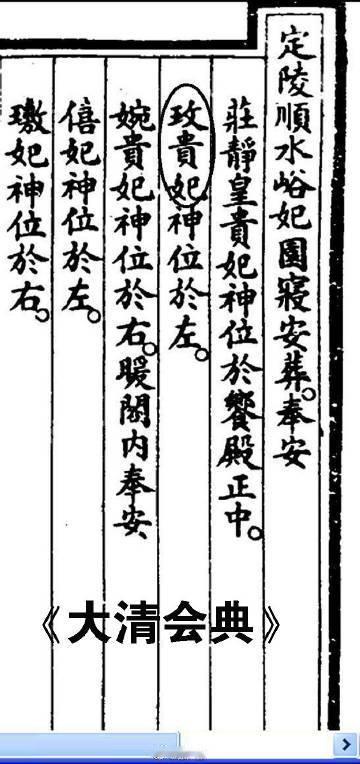 定陵順水峪妃園寢安葬。奉安
莊靜皇貴妃神位於饗殿正中。
玫貴妃神位於左。
婉貴妃神位於右。暖閣内奉安
僖妃神位於左。
妃神位於右。
《大清会典》